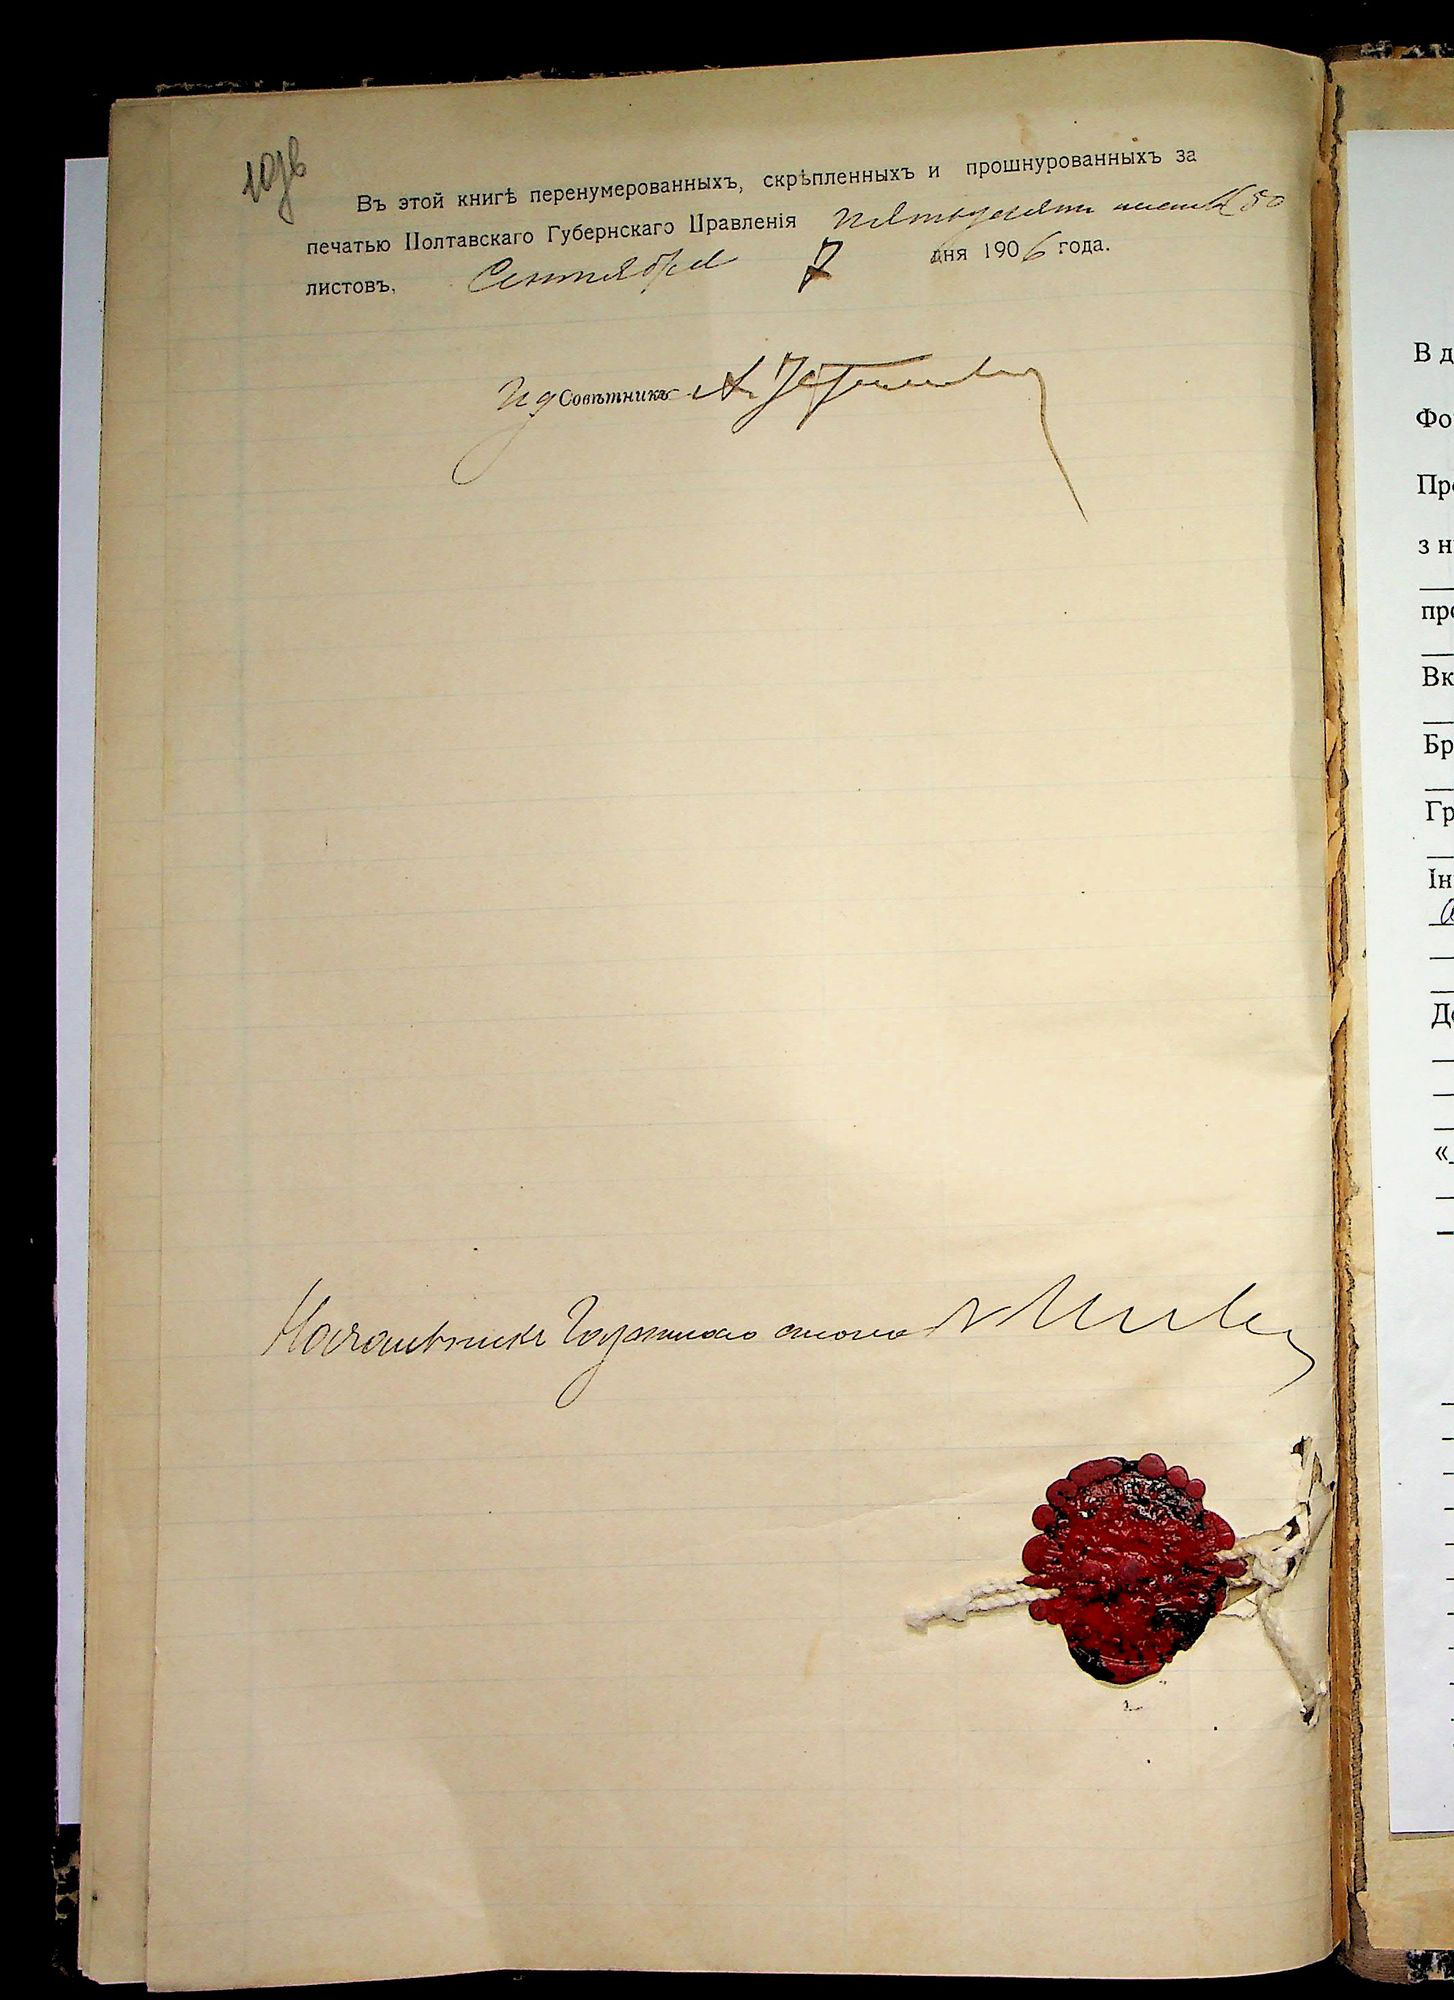 Въ этой книгѣ перенумерованныхъ, скрѣпленныхъ и прошнурованныхъ за
печатью Полтавскаго Губернскаго Правленія пятьдесятъ 50
листовъ. Сентября 7 дня 1906 года.
И д Совѣтникъ А.
Начальникъ Газетнаго стола
В д
Фо
Пр
з н
про
Вк
Бр
Гр
Ін
До
«